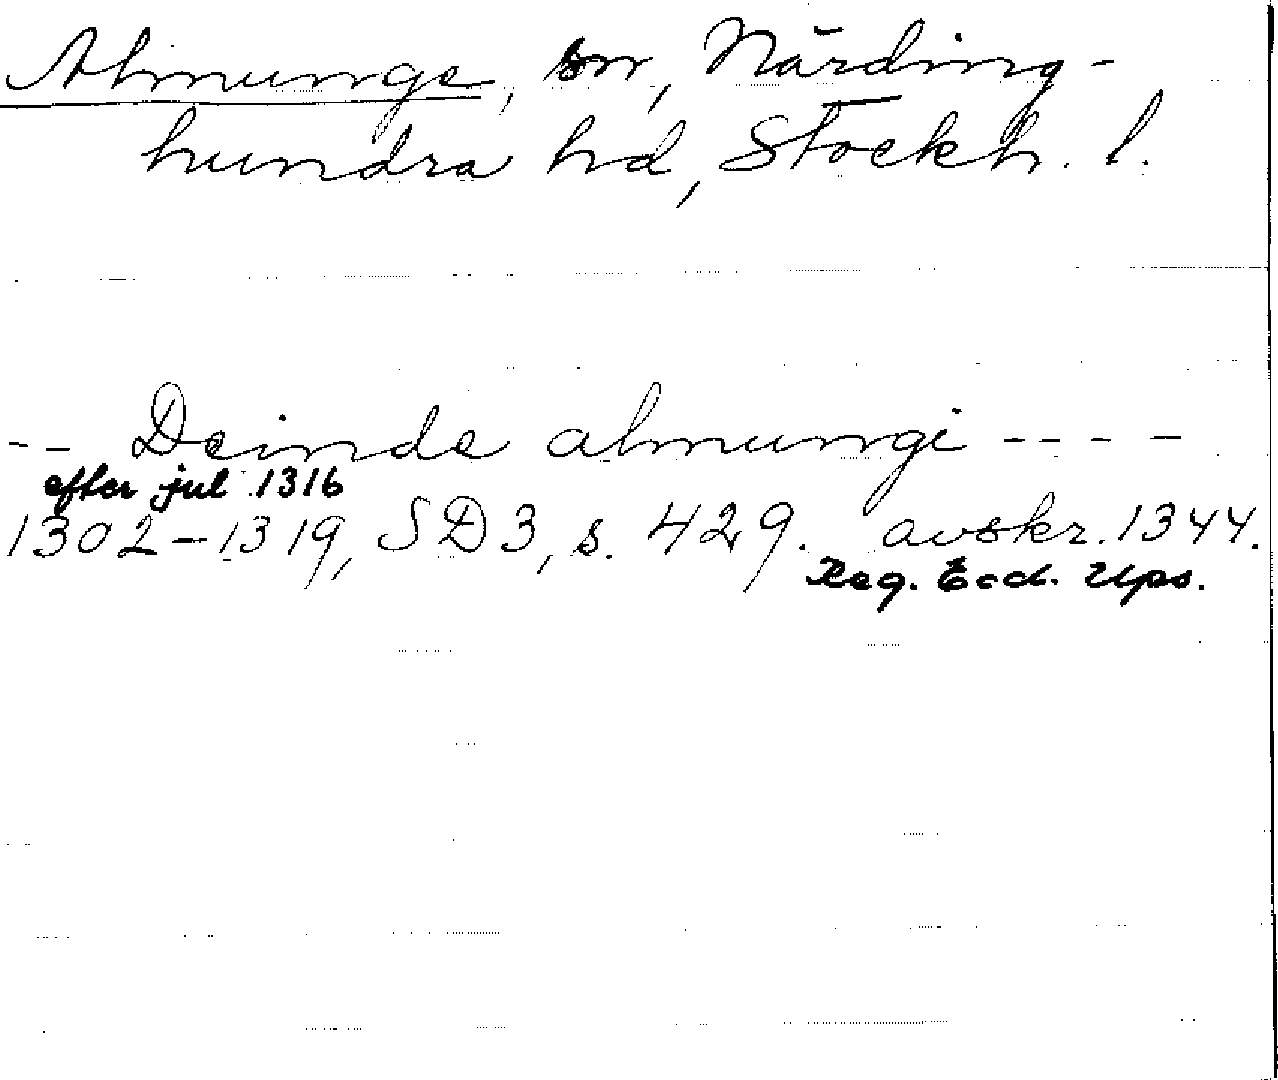 Almunge, sn, Närding-
hundra hd, Stockh. l.
-- Deinde almungi ----
efter jul 1316
1302-1319, SD3, s. 429. avskr. 1344.
Reg. Eccl. Ups.